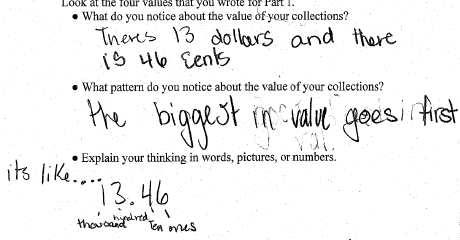 Look at the four values that you wrote for Part 1.
• What do you notice about the value of your collections?
Theres 13 dollars and there
is 46 cents
• What pattern do you notice about the value of your collections?
the biggest in value goes first
• Explain your thinking in words, pictures, or numbers.
its like....
13.46
thousand hundred Ten ones